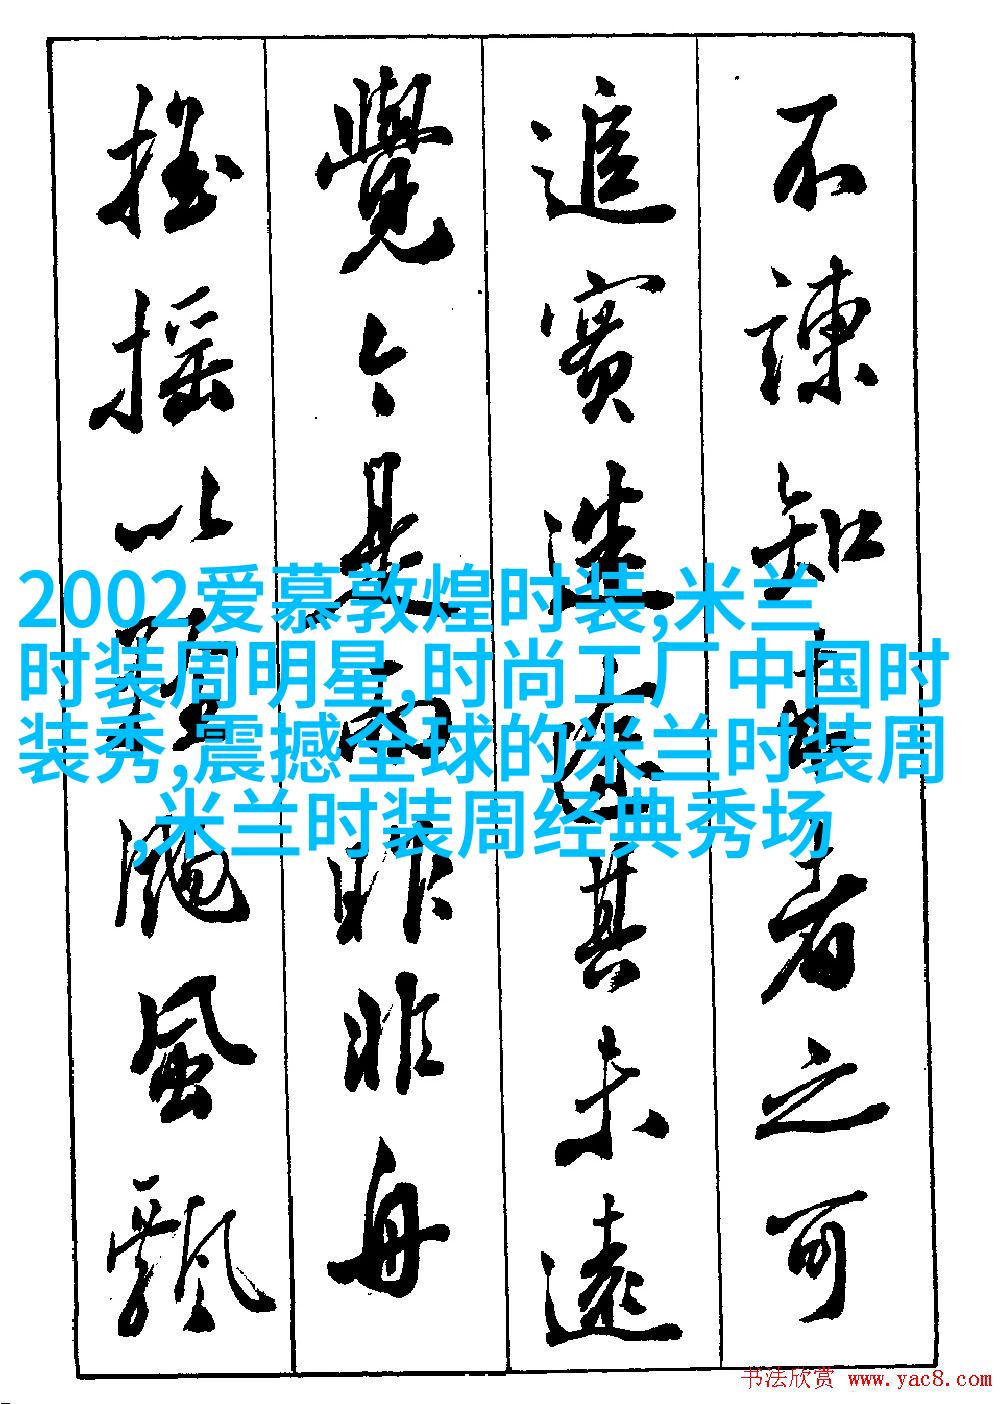 不諫知来者之可
追實迷途其未遠
覺今是而昨非舟
摇摇以輕颺風飄
2002爱慕敦煌时装,米兰
时装周明星,时尚工厂中国时
装秀,震撼全球的米兰时装周
,米兰时装周经典秀场
书法欣赏 www.yac8.com